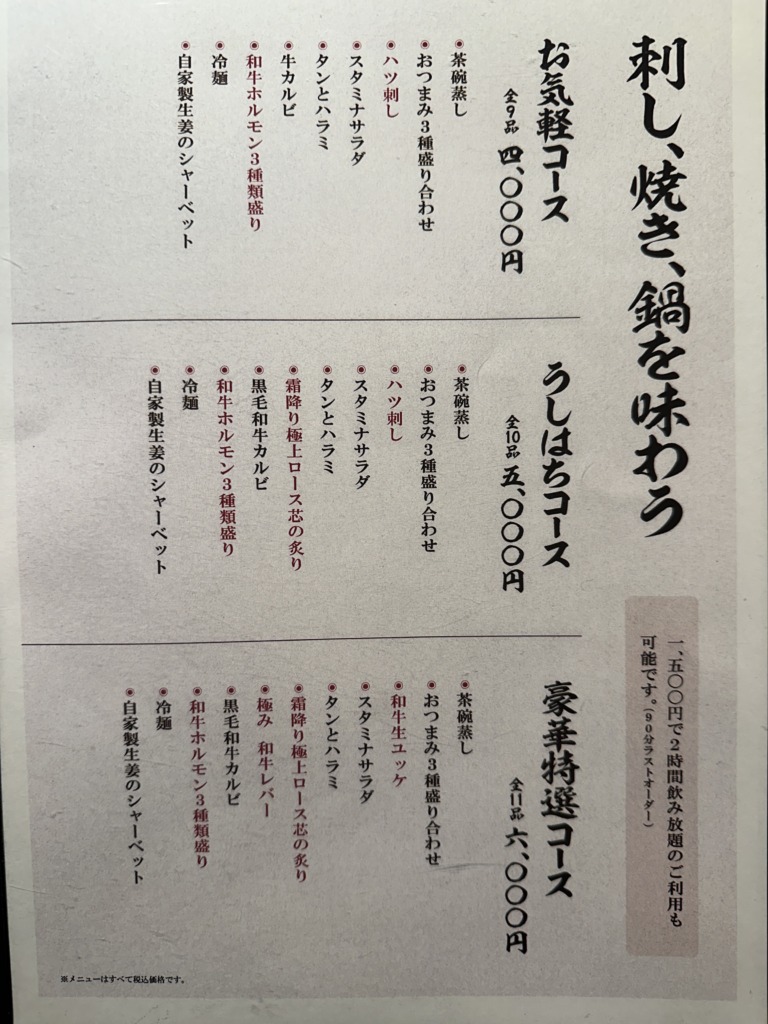 刺し、焼き、鍋を味わう
一、五〇〇円で2時間飲み放題のご利用も
可能です。(90分ラストオーダー)
お気軽コース
全9品 四、〇〇〇円
茶碗蒸し
おつまみ3種盛り合わせ
ハツ刺し
スタミナサラダ
タンとハラミ
牛カルビ
和牛ホルモン3種類盛り
冷麺
自家製生姜のシャーベット
うしはちコース
全10品 五、〇〇〇円
茶碗蒸し
おつまみ3種盛り合わせ
ハツ刺し
スタミナサラダ
タンとハラミ
霜降り極上ロース芯の炙り
黒毛和牛カルビ
和牛ホルモン3種類盛り
冷麺
自家製生姜のシャーベット
豪華特選コース
全11品 六、〇〇〇円
茶碗蒸し
おつまみ3種盛り合わせ
和牛生ユッケ
スタミナサラダ
タンとハラミ
霜降り極上ロース芯の炙り
極み 和牛レバー
黒毛和牛カルビ
和牛ホルモン3種類盛り
冷麺
自家製生姜のシャーベット
※メニューはすべて税込価格です。